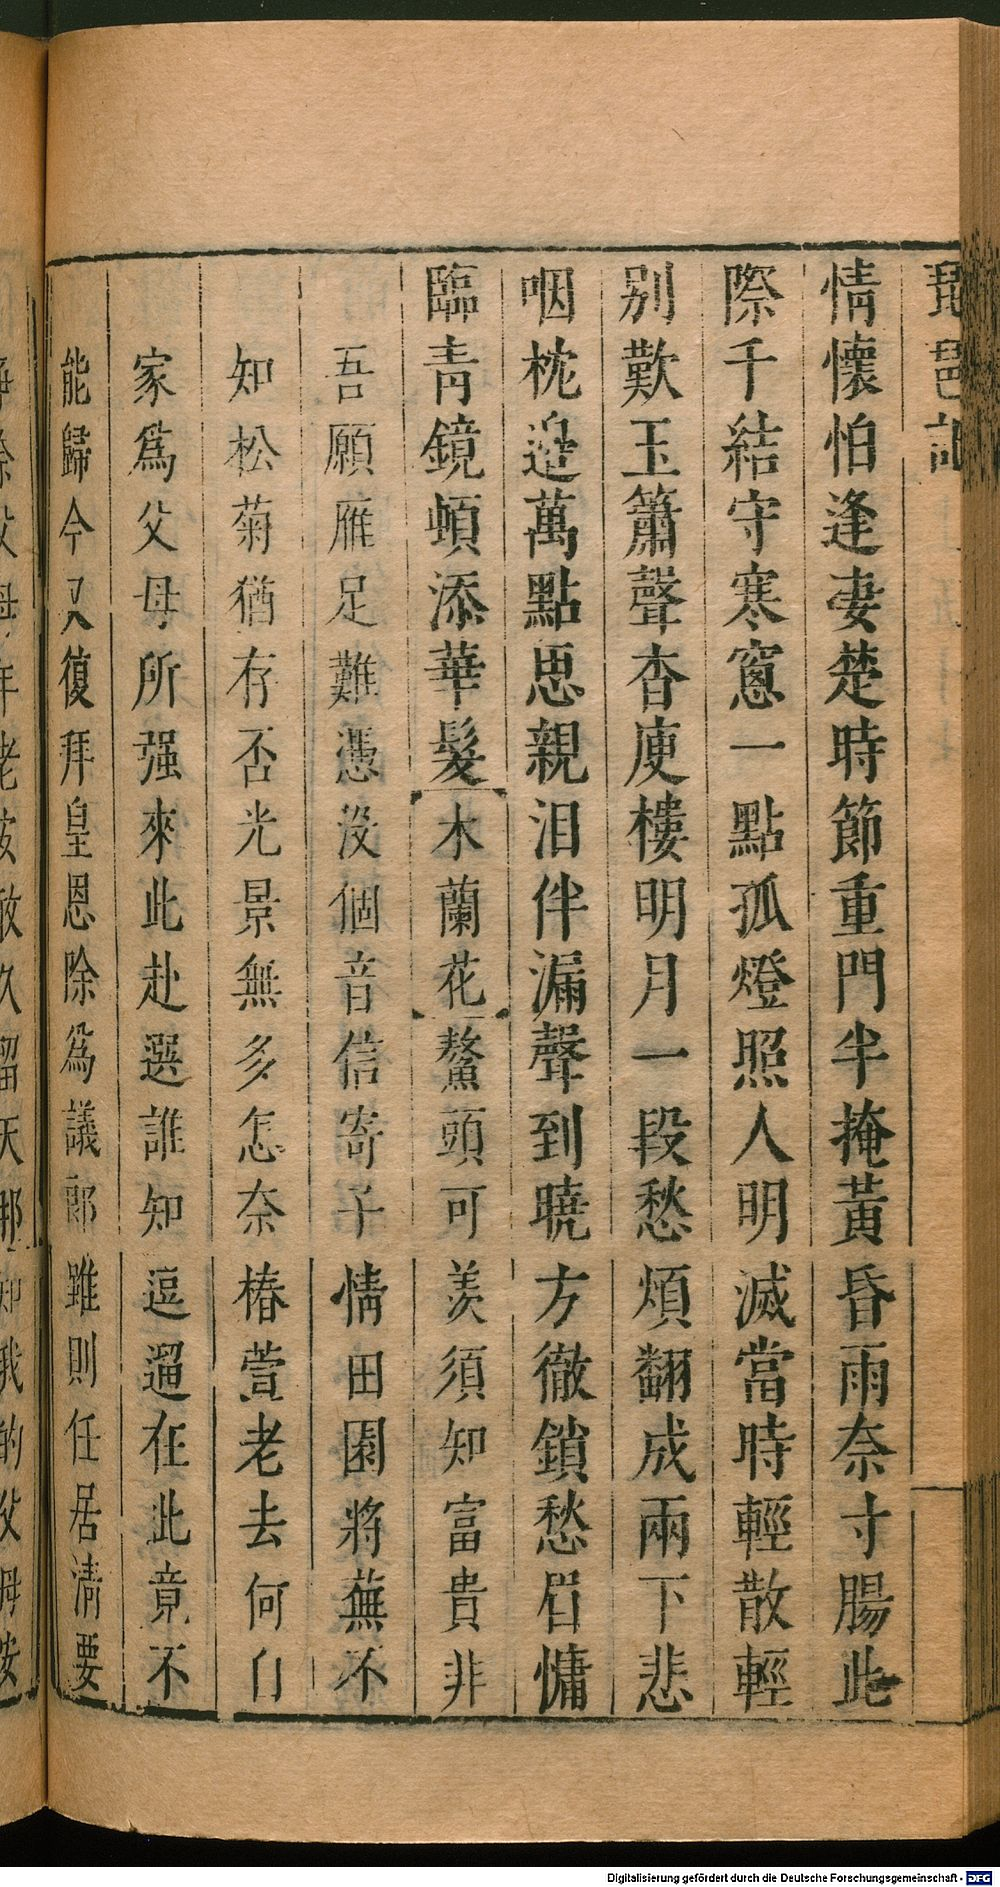 琵琶記
情懷怕逢淒楚時節重門半掩黃昏雨奈寸腸此
際千結守寒窻一點孤燈照人明滅當時輕散輕
别歎玉簫聲杳庾樓明月一段愁煩翻成兩下悲
咽枕邉萬點思親泪伴漏聲到曉方徹鎖愁眉慵
臨青鏡頓添華髮木蘭花鰲頭可羨須知富貴非
吾願雁足難憑没個音信寄子情田園將蕪不
知松菊猶存否光景無多怎奈椿萱老去何自
家爲父母所强來此赴選誰知逗遛在此竟不
能歸今又復拜皇恩除爲議郎雖則任居清要
Digitalisierung gefördert durch die Deutsche Forschungsgemeinschaft - DFG